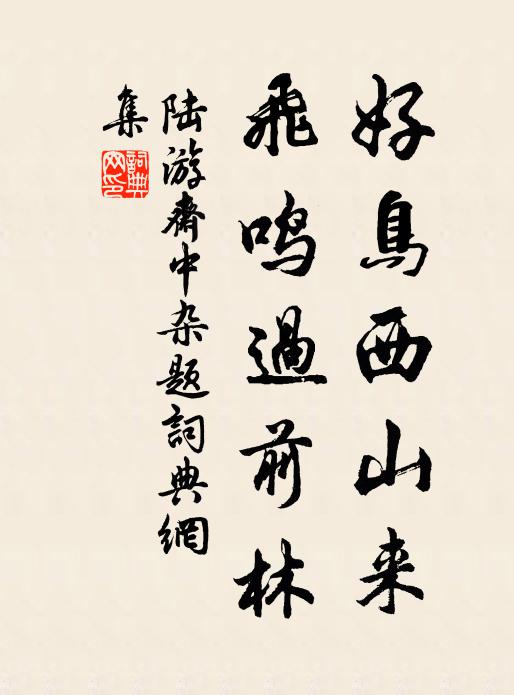 好鳥西山来
飛鳴過前林
陆游齋中杂題詞典網
集
詞典
网印